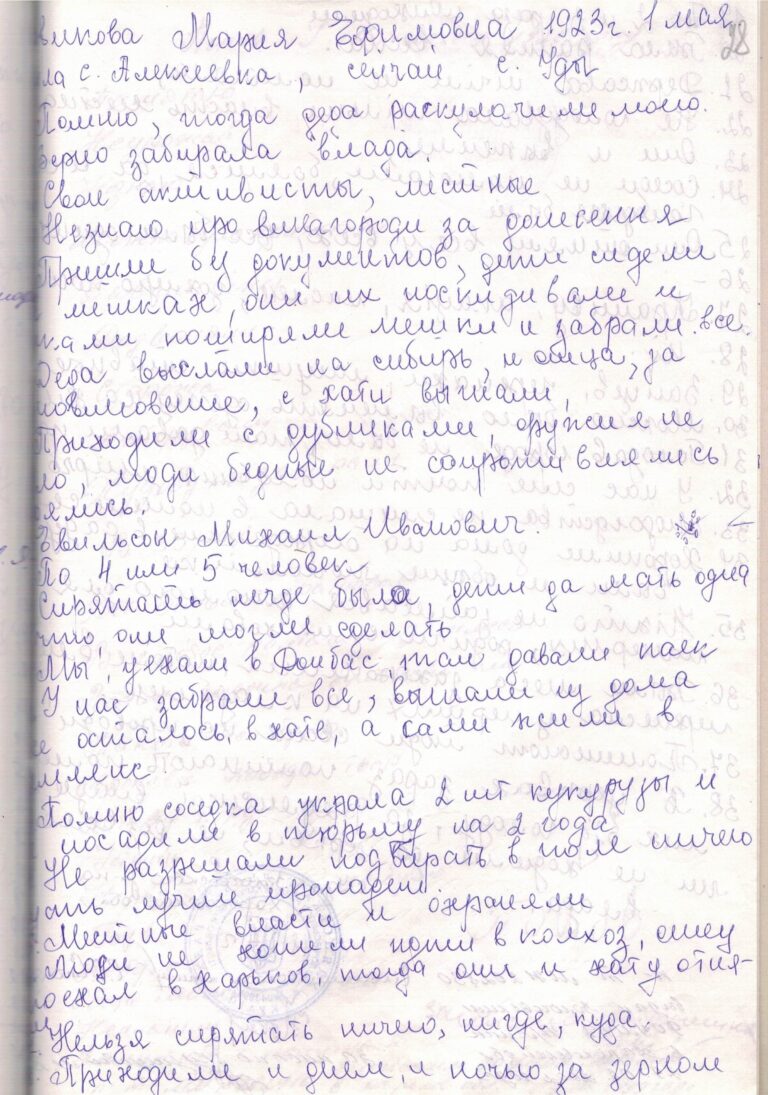 викова Мария Ефимовна 1923г. 1 мая
28
ла с. Алексеевка, сейчас с. Уды
Помню, тогда деда раскулачили моего.
Зерно забирала влада.
Свои активисты, местные
Незнаю про винагороди за донесення
Пришли без документов, дети сидели
мешках, они их поскидивали и
ками поширяли мешки и забрали все.
Деда выслали на сибирь, и отца, за
новиновение, с хати выгнали,
Приходили с дубинками, оружия не
ло, люди бедные не сопротивлялись
ялись.
Эвильсон Михаил Иванович.
По 4 или 5 человек
Спрятать негде было, дети да мать одна
что они могли сделать
Мы, уехали в Донбас, там давали паек
У нас забрали все, выгнали из дома
е осталось, в хате, а сами жили в
млянке
Помню соседка украла 2 шт кукурузы и
посадили в тюрьму на 2 года
Не разрешали подбирать в поле ничего
ать лучше пропадет.
Местные власти и охраняли
Люди не хотели идти в колхоз, отец
оехал в Харьков, тогда они и хату отня-
Нельзя спрятать ничего, нигде, куда.
Приходили и днем, и ночью за зерном